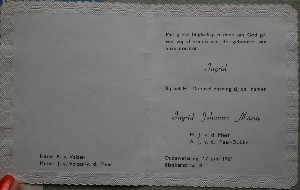 Met grote blijdschap en dank aan God ge-
ven wij U kennis van de geboorte van
onze dochter
Ingrid
Bij het H. Doopsel ontving zij de namen
Ingrid Johanna Maria
H. J. v. d. Meer
A. J. v. d. Meer-Dubbe
Peter: A. v. Velzen
Meter: J. v. Velzen-v. d. Meer
Oudewetering, 17 juni 1961